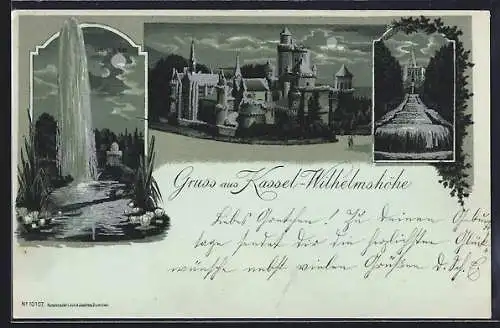 Gruss aus Kassel-Wilhelmshöhe
Liebes Gretchen! Zu deinem Geburts
tage sendet dir die herzlichsten Glück
wünsche nebst vielen Grüßen d. Sch.
No 10107.